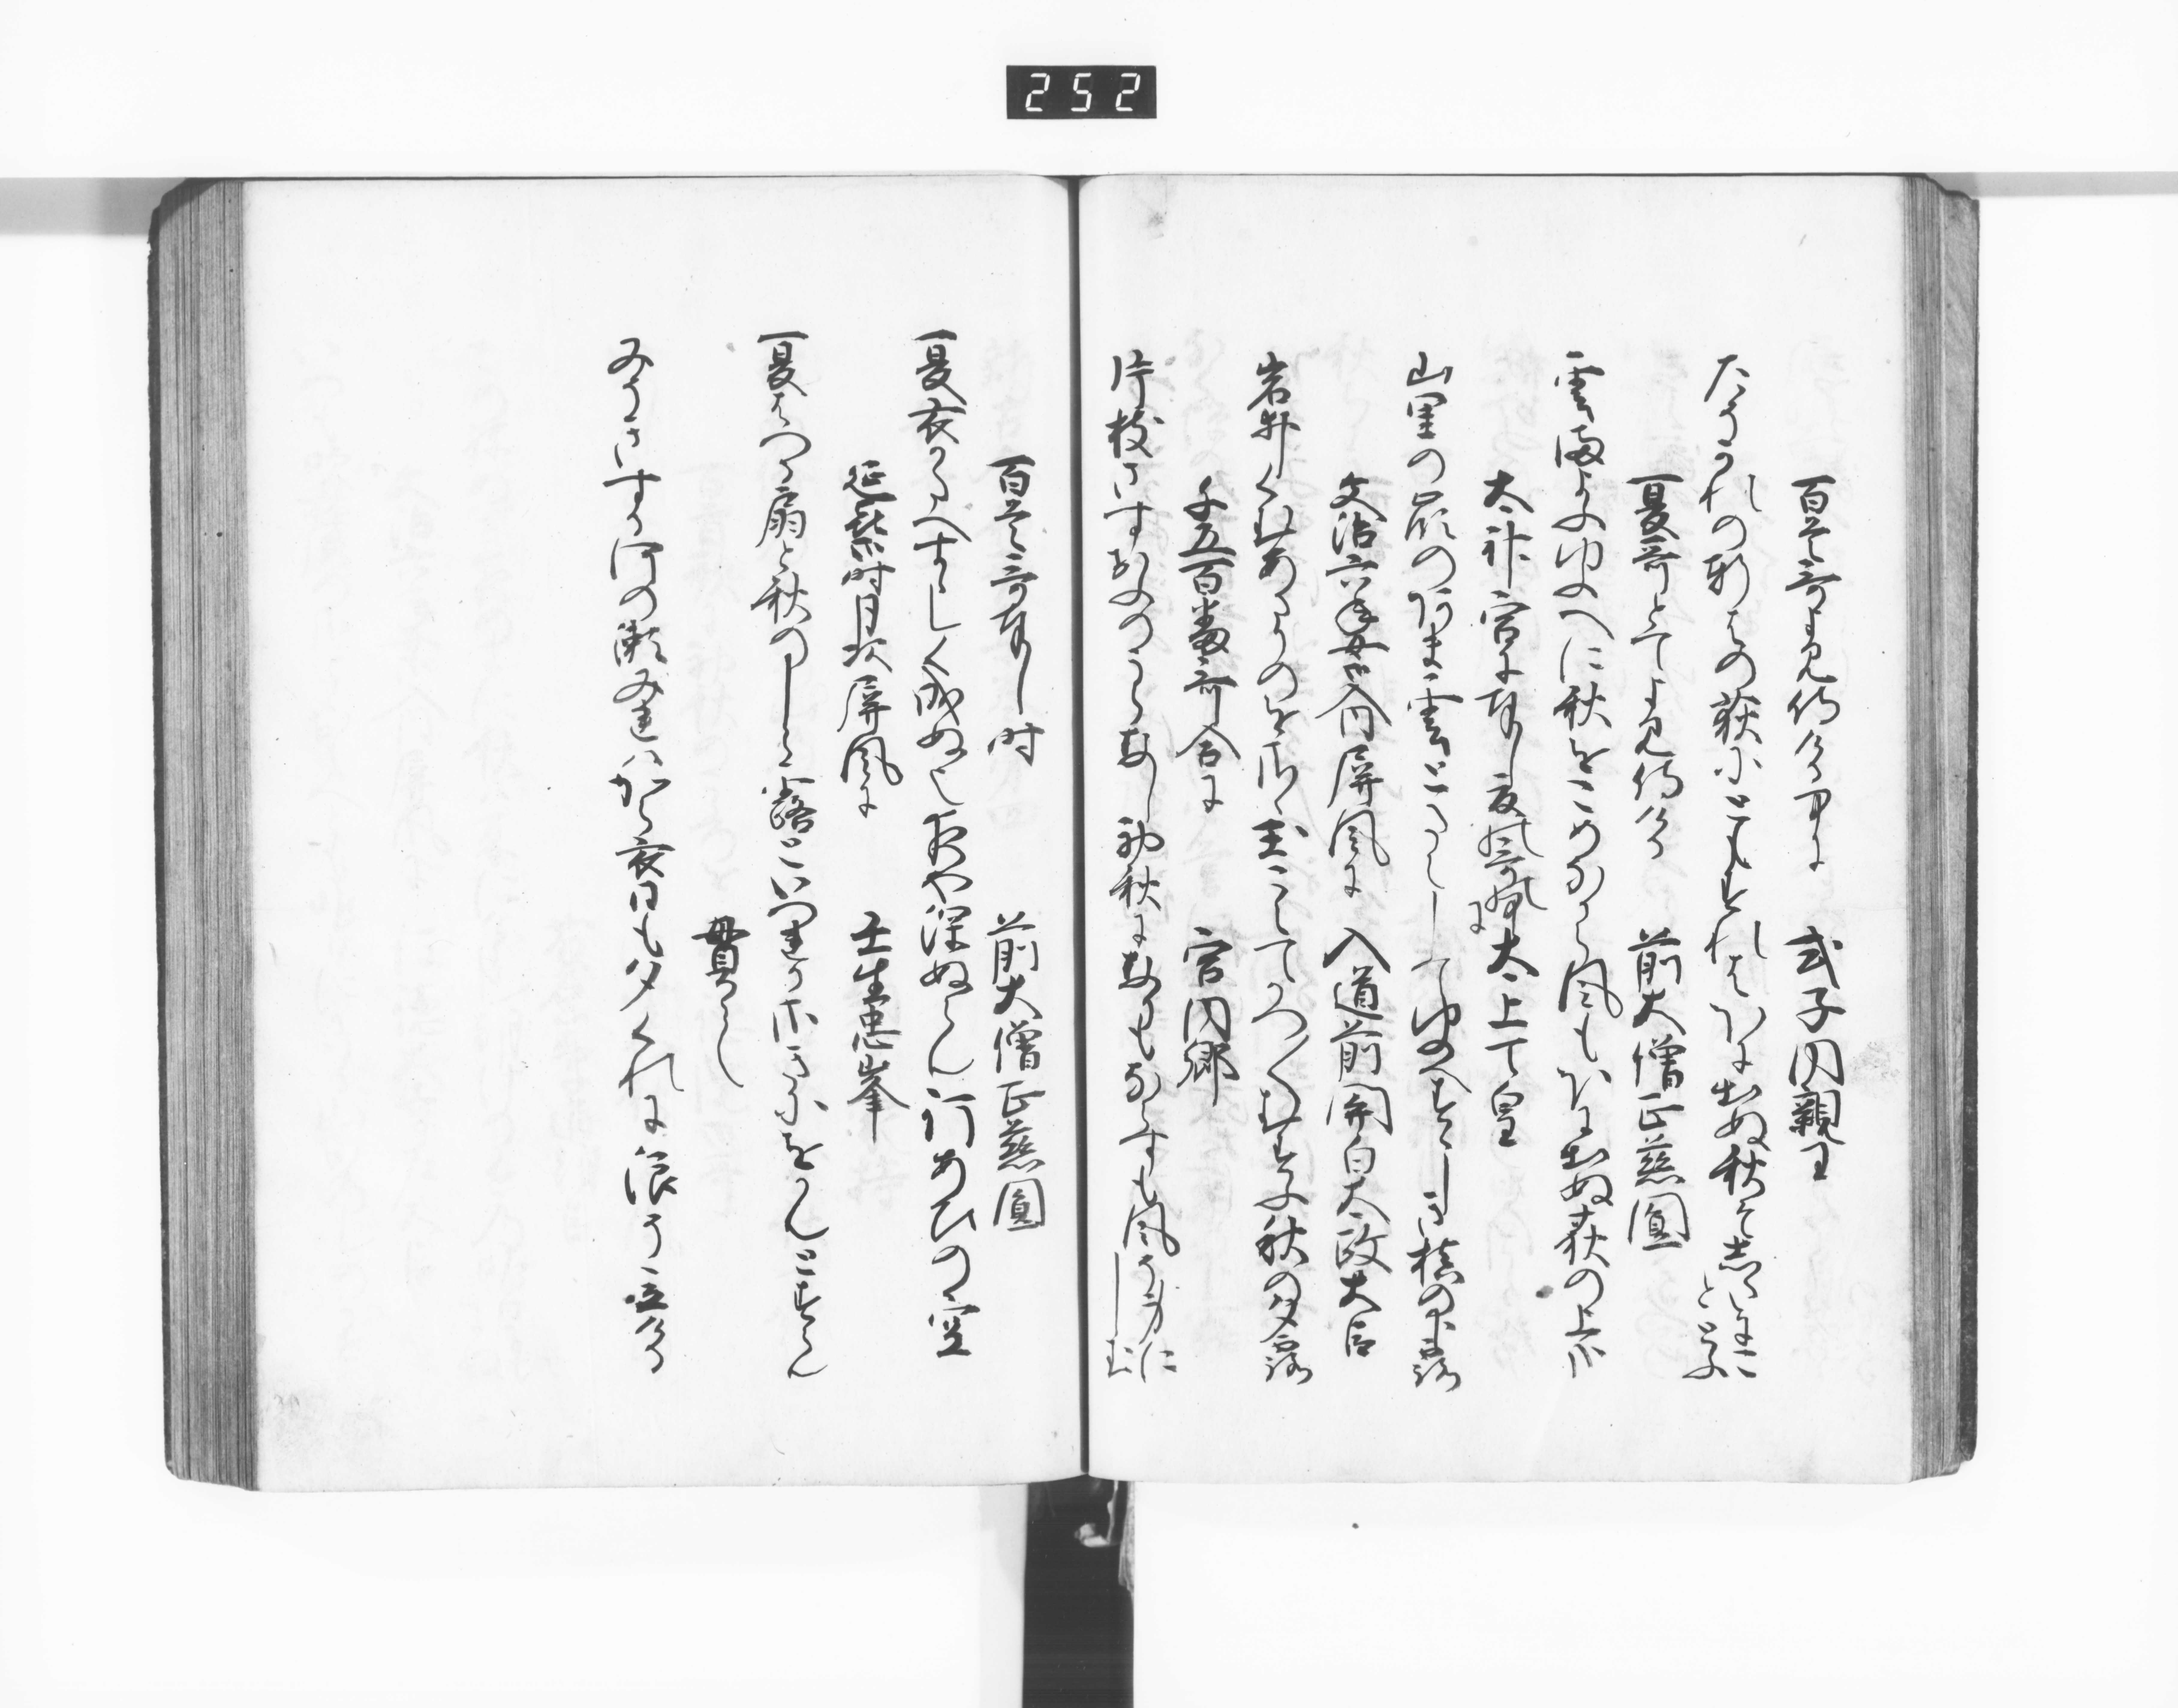 252
百首哥よみ侍ける中に　式子内親王
たそかれの軒はの荻にともすれはほに出ぬ秋そ志たにことゝふ
夏哥とてよみ侍ける　前大僧正慈圓
雲まよふゆふへに秋をこめなから風もほに出ぬ荻の上かな
太神宮に奉し夏哥に　太上天皇
山里の峯のあま雲とたえしてゆふへすゝしき槙の下露
文治六年女御入内屏風に　入道前関白太政大臣
岩井くむあたりのをさゝ玉こえてかつ〳〵むすふ秋の夕露
千五百番哥合に　宮内卿
片枝さすおふのうらなし初秋になりもならすも風そ身にしむ
百首哥奉し時　前大僧正慈圓
夏衣かたへすゝしく成ぬなり夜や深ぬらん行あひの空
延喜御時月次屏風に　壬生忠峯
夏はつる扇と秋のしら露といつれかまつはをかんとすらん
貫之
みそきする河の瀬みれはから衣日も夕くれに浪そ立ける